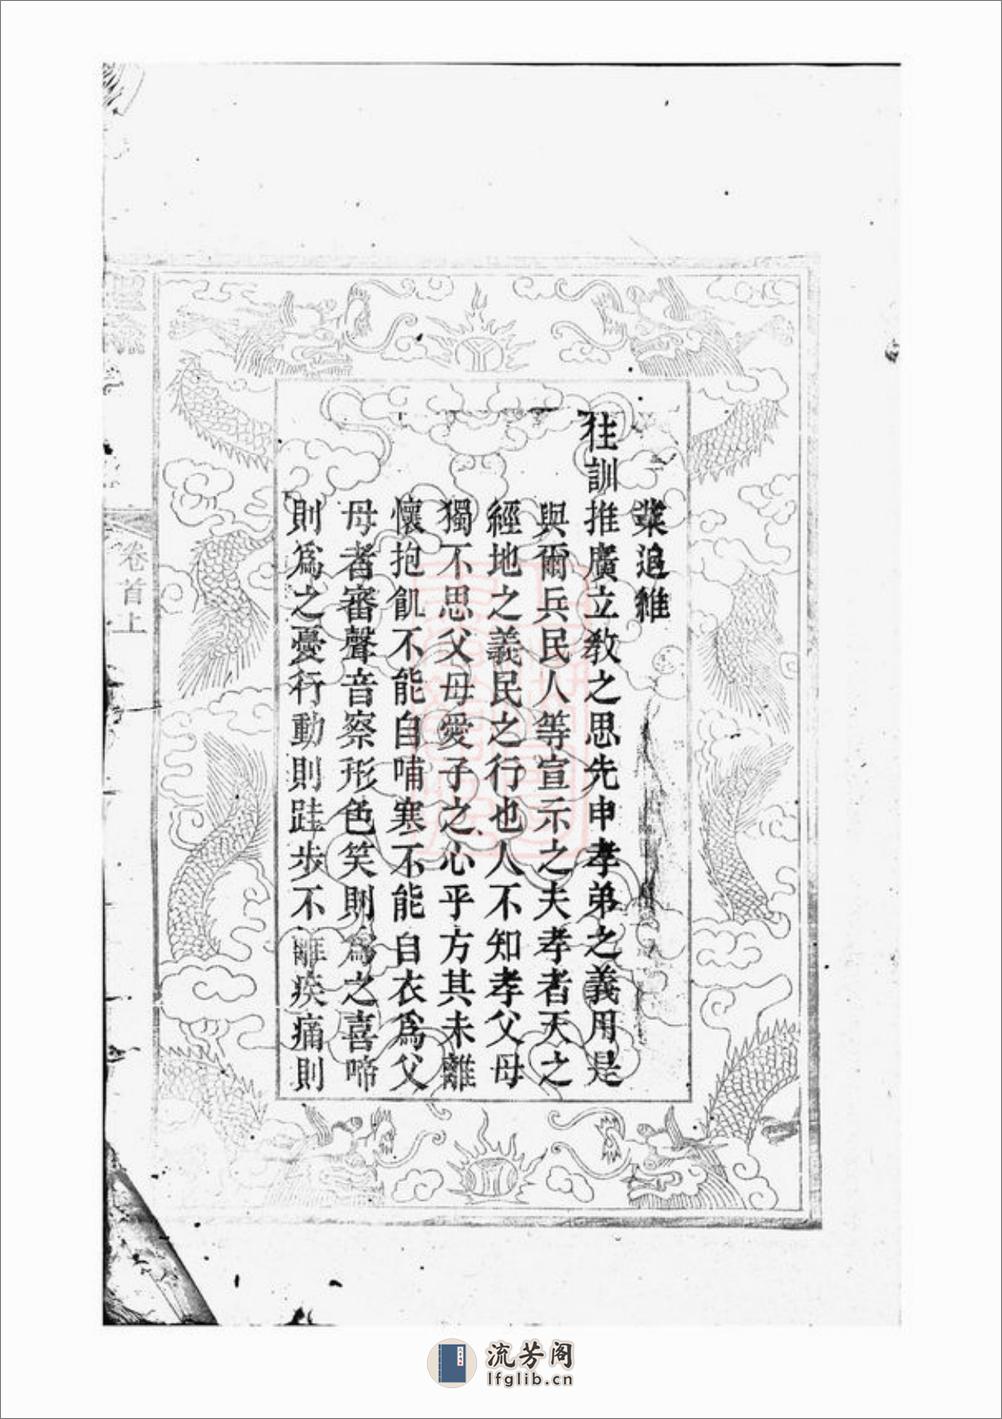 業追維
往訓推廣立教之思先申孝弟之義用是
與爾兵民人等宣示之夫孝者天之
經地之義民之行也人不知孝父母
獨不思父母愛子之心乎方其未離
懷抱飢不能自哺寒不能自衣爲父
母者審聲音察形色笑則爲之喜啼
則爲之憂行動則跬步不離疾痛則
卷首上
流芳阁
lfglib.cn